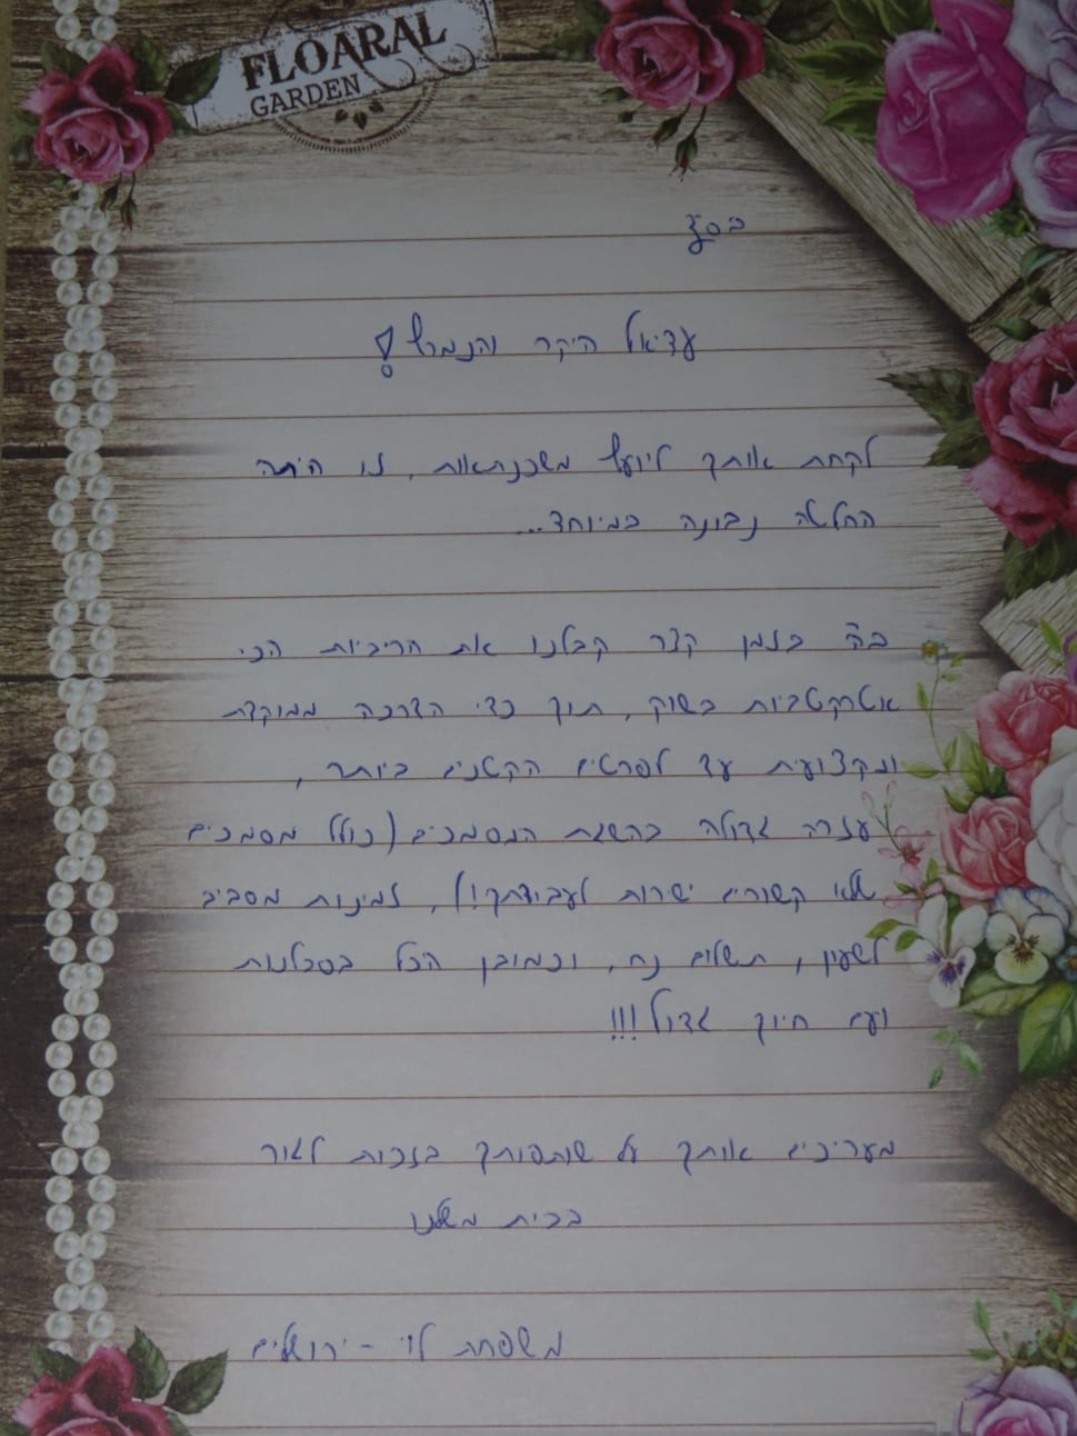 FLOARAL
GARDEN
בס"ד
עדיאל היקר והנמרץ!
לקחת אותך ליועץ משכנתאות, זו היתה
החלטה נבונה במיוחד...
ב"ה בזמן קצר קבלנו את הריביות הכי
אטרקטביות בשוק, תוך כדי הדרכה ממוקדת
ומקצועית עד לפרטים הקטנים ביותר,
עזרה גדולה בהשגת המסמכים (כולל מסמכים
שלא קשורים ישרות לעבידתך!), זמינות מסביב
לשעון, תשלום נח, וכמובן הכל בסבלנות
ועם חיוך גדול!!!
מעריכים אותך על שותפותך בזכות לגור
בבית משלנו
משפחת לוי - ירושלים